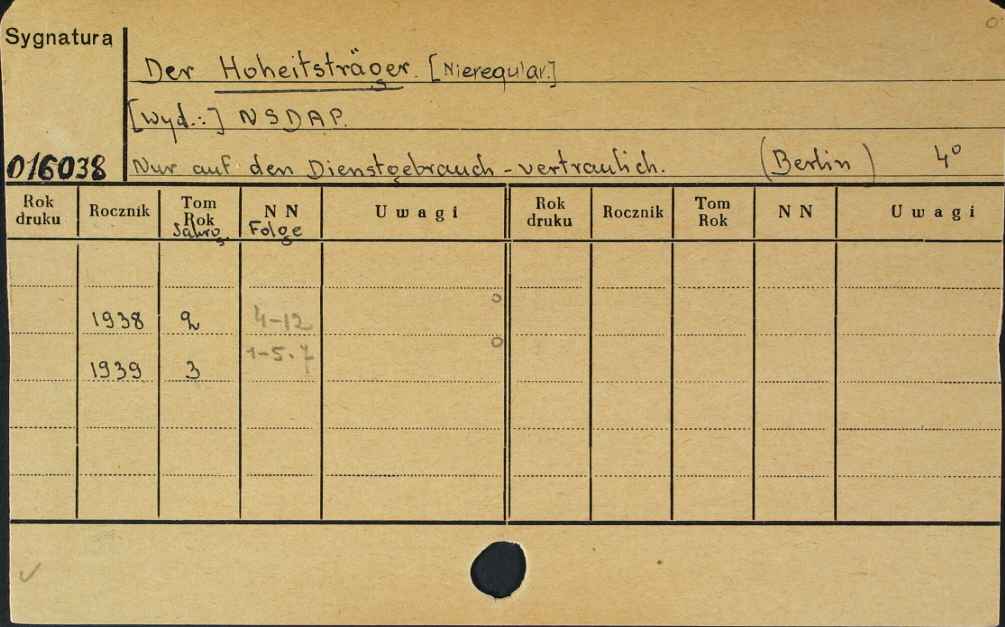 Sygnatura
Der Hoheitsträger. [Nieregular.]
[Wyd.:] NSDAP.
016038 Nur auf den Dienstgebrauch - vertraulich. (Berlin) 4°
Rok druku Rocznik Tom Rok Jahrg. NN Folge Uwagi Rok druku Rocznik Tom Rok NN Uwagi
1938 2 4-12
1939 3 1-5.7